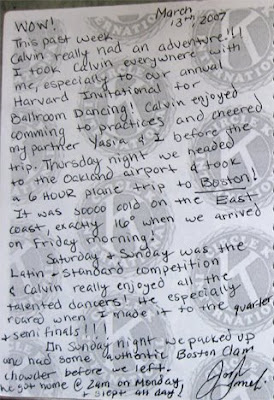 March
13th, 2007
WOW!
This past week
Calvin really had an adventure!!!
I took Calvin everywhere with
me, especially to our annual
Harvard Invitational for
Ballroom Dancing! Calvin enjoyed
comming to practices and cheered
my partner Yasra & I before the
trip. Thursday night we headed
to the Oakland airport & took
a 6 HOUR plane trip to Boston!
It was SOOOO cold on the East
coast, exactly 16° when we arrived
on Friday morning!
Saturday + Sunday was the
Latin + Standard competition
& Calvin really enjoyed all the
talented dancers! He especially
roared when I made it to the quarter
+ semi finals!!!
On Sunday night we packed up
and had some authentic Boston Clam
chowder before we left.
We got home @ 2am on Monday
+ slept all day!